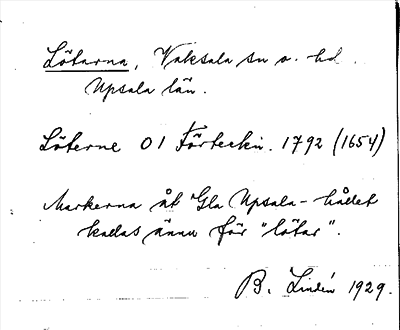 Lötarna, Vaksala sn o. hd.
Upsala län.
Löterne O I Förteckn. 1792 (1654)
Markerna åt Gla Upsala-hållet
kallas ännu för "lötar".
B. Lindén 1929.